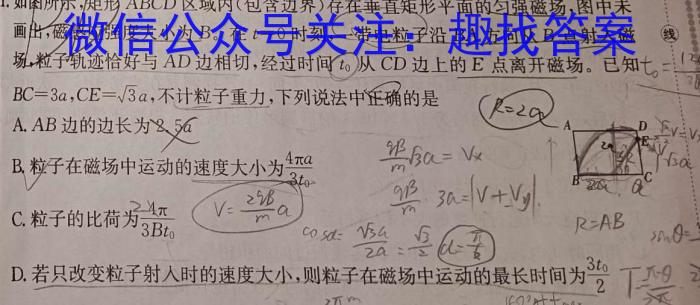 1.如图所示,矩形ABCD区域内(包含边界)存在垂直矩形平面的匀强磁场,图中未
画出,磁感应强度大小为B。在t=0时刻,一带电粒子沿BA方向从B点射入磁
微信公众号关注:趣找答案
线
场,粒子轨迹恰好与AD边相切,经过时间t₀从CD边上的E点离开磁场。已知
BC=3a,CE=√3a,不计粒子重力,下列说法中正确的是
A.AB边的边长为2.5a
R=2a
A D
E
B C
B.粒子在磁场中运动的速度大小为4πa/3t₀
qB/m √3a = Vx
qB/m · 3a = |V+Vy|
C.粒子的比荷为4π/3Bt₀
V=2qB/m a
cosα= √3a/2a = √3/2
α=π/6
R=AB
D.若只改变粒子射入时的速度大小,则粒子在磁场中运动的最长时间为3t₀/2